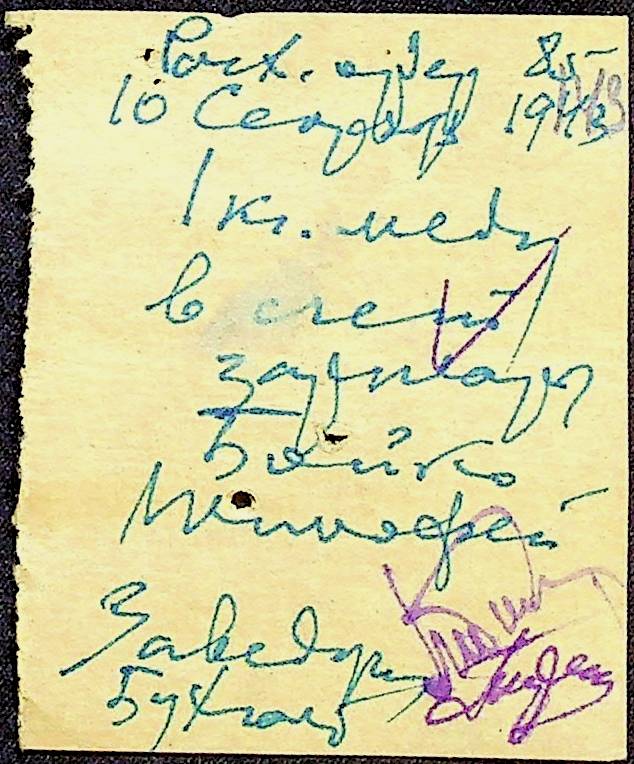 Расх. ордер 85
10 Сентября 1943
1 кг. меду
в счет
зарплаты
Бойко
Тимофей
Заведующ
Бухгал